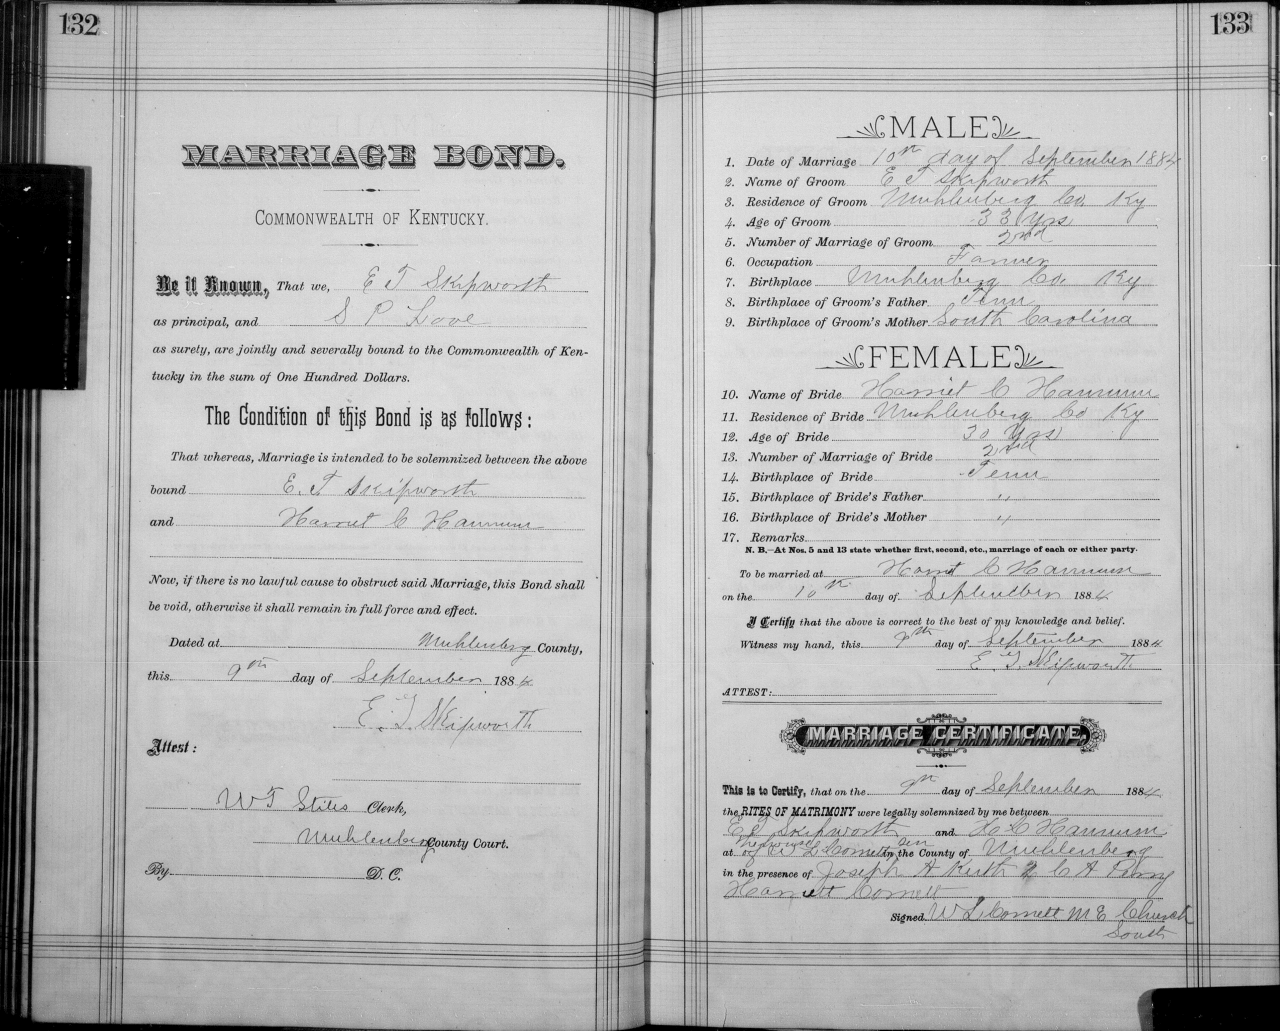 132
MARRIAGE BOND.
COMMONWEALTH OF KENTUCKY.
Be it Known, That we, E T Skipworth
as principal, and S P Love
as surety, are jointly and severally bound to the Commonwealth of Ken-
tucky in the sum of One Hundred Dollars.
The Condition of this Bond is as follows:
That whereas, Marriage is intended to be solemnized between the above
bound E. T Skipworth
and Harriet C Hannum
Now, if there is no lawful cause to obstruct said Marriage, this Bond shall
be void, otherwise it shall remain in full force and effect.
Dated at Muhlenberg County,
this 9th day of September 1884
E. T. Skipworth
Attest:
W T Stiles Clerk,
Muhlenberg County Court.
By D. C.
133
MALE
1. Date of Marriage 10th day of September 1884
2. Name of Groom E T Skipworth
3. Residence of Groom Muhlenberg Co. Ky
4. Age of Groom 33 Yrs
5. Number of Marriage of Groom 2nd
6. Occupation Farmer
7. Birthplace Muhlenberg Co. Ky
8. Birthplace of Groom's Father Tenn
9. Birthplace of Groom's Mother South Carolina
FEMALE
10. Name of Bride Harriet C Hannum
11. Residence of Bride Muhlenberg Co Ky
12. Age of Bride 30 Yrs
13. Number of Marriage of Bride 2nd
14. Birthplace of Bride Tenn
15. Birthplace of Bride's Father "
16. Birthplace of Bride's Mother "
17. Remarks
N. B.—At Nos. 5 and 13 state whether first, second, etc., marriage of each or either party.
To be married at Harriet C Hannum
on the 10th day of September 1884
I Certify that the above is correct to the best of my knowledge and belief.
Witness my hand, this 9th day of September 1884
E. T. Skipworth
ATTEST:
MARRIAGE CERTIFICATE.
This is to Certify, that on the 9th day of September 1884
the RITES OF MATRIMONY were legally solemnized by me between
E T Skipworth and H C Hannum
at of W L Cornett in the County of Muhlenberg
in the presence of Joseph A Keith & C A Penny
Harriett Cornett
Signed W L Cornett M E Church
South